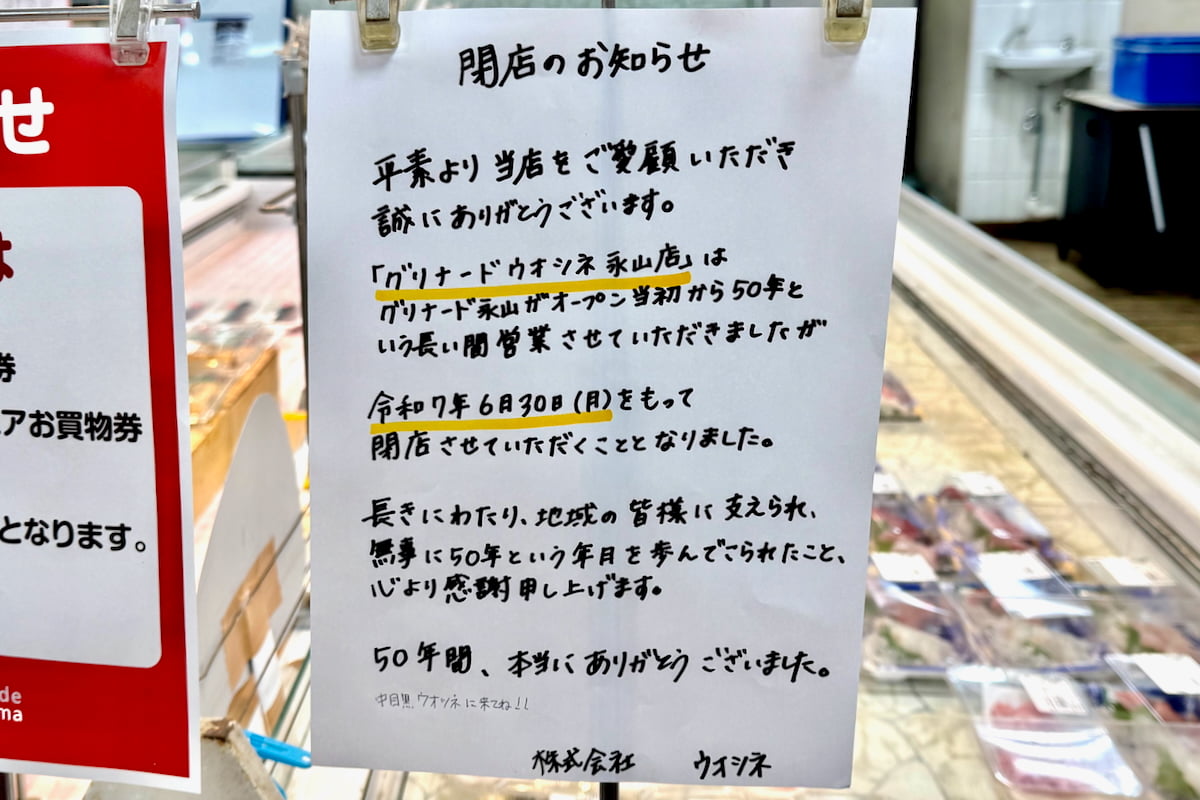 せ
は
券
アお買物券
となります。
de
ma
閉店のお知らせ
平素より当店をご愛顧いただき
誠にありがとうございます。
「グリナードウオシネ永山店」は
グリナード永山がオープン当初から50年と
いう長い間営業させていただきましたが
令和7年6月30日(月)をもって
閉店させていただくこととなりました。
長きにわたり、地域の皆様に支えられ、
無事に50年という年月を歩んでこられたこと、
心より感謝申し上げます。
50年間、本当にありがとうございました。
中目黒ウオシネに来てね!!
株式会社 ウオシネ